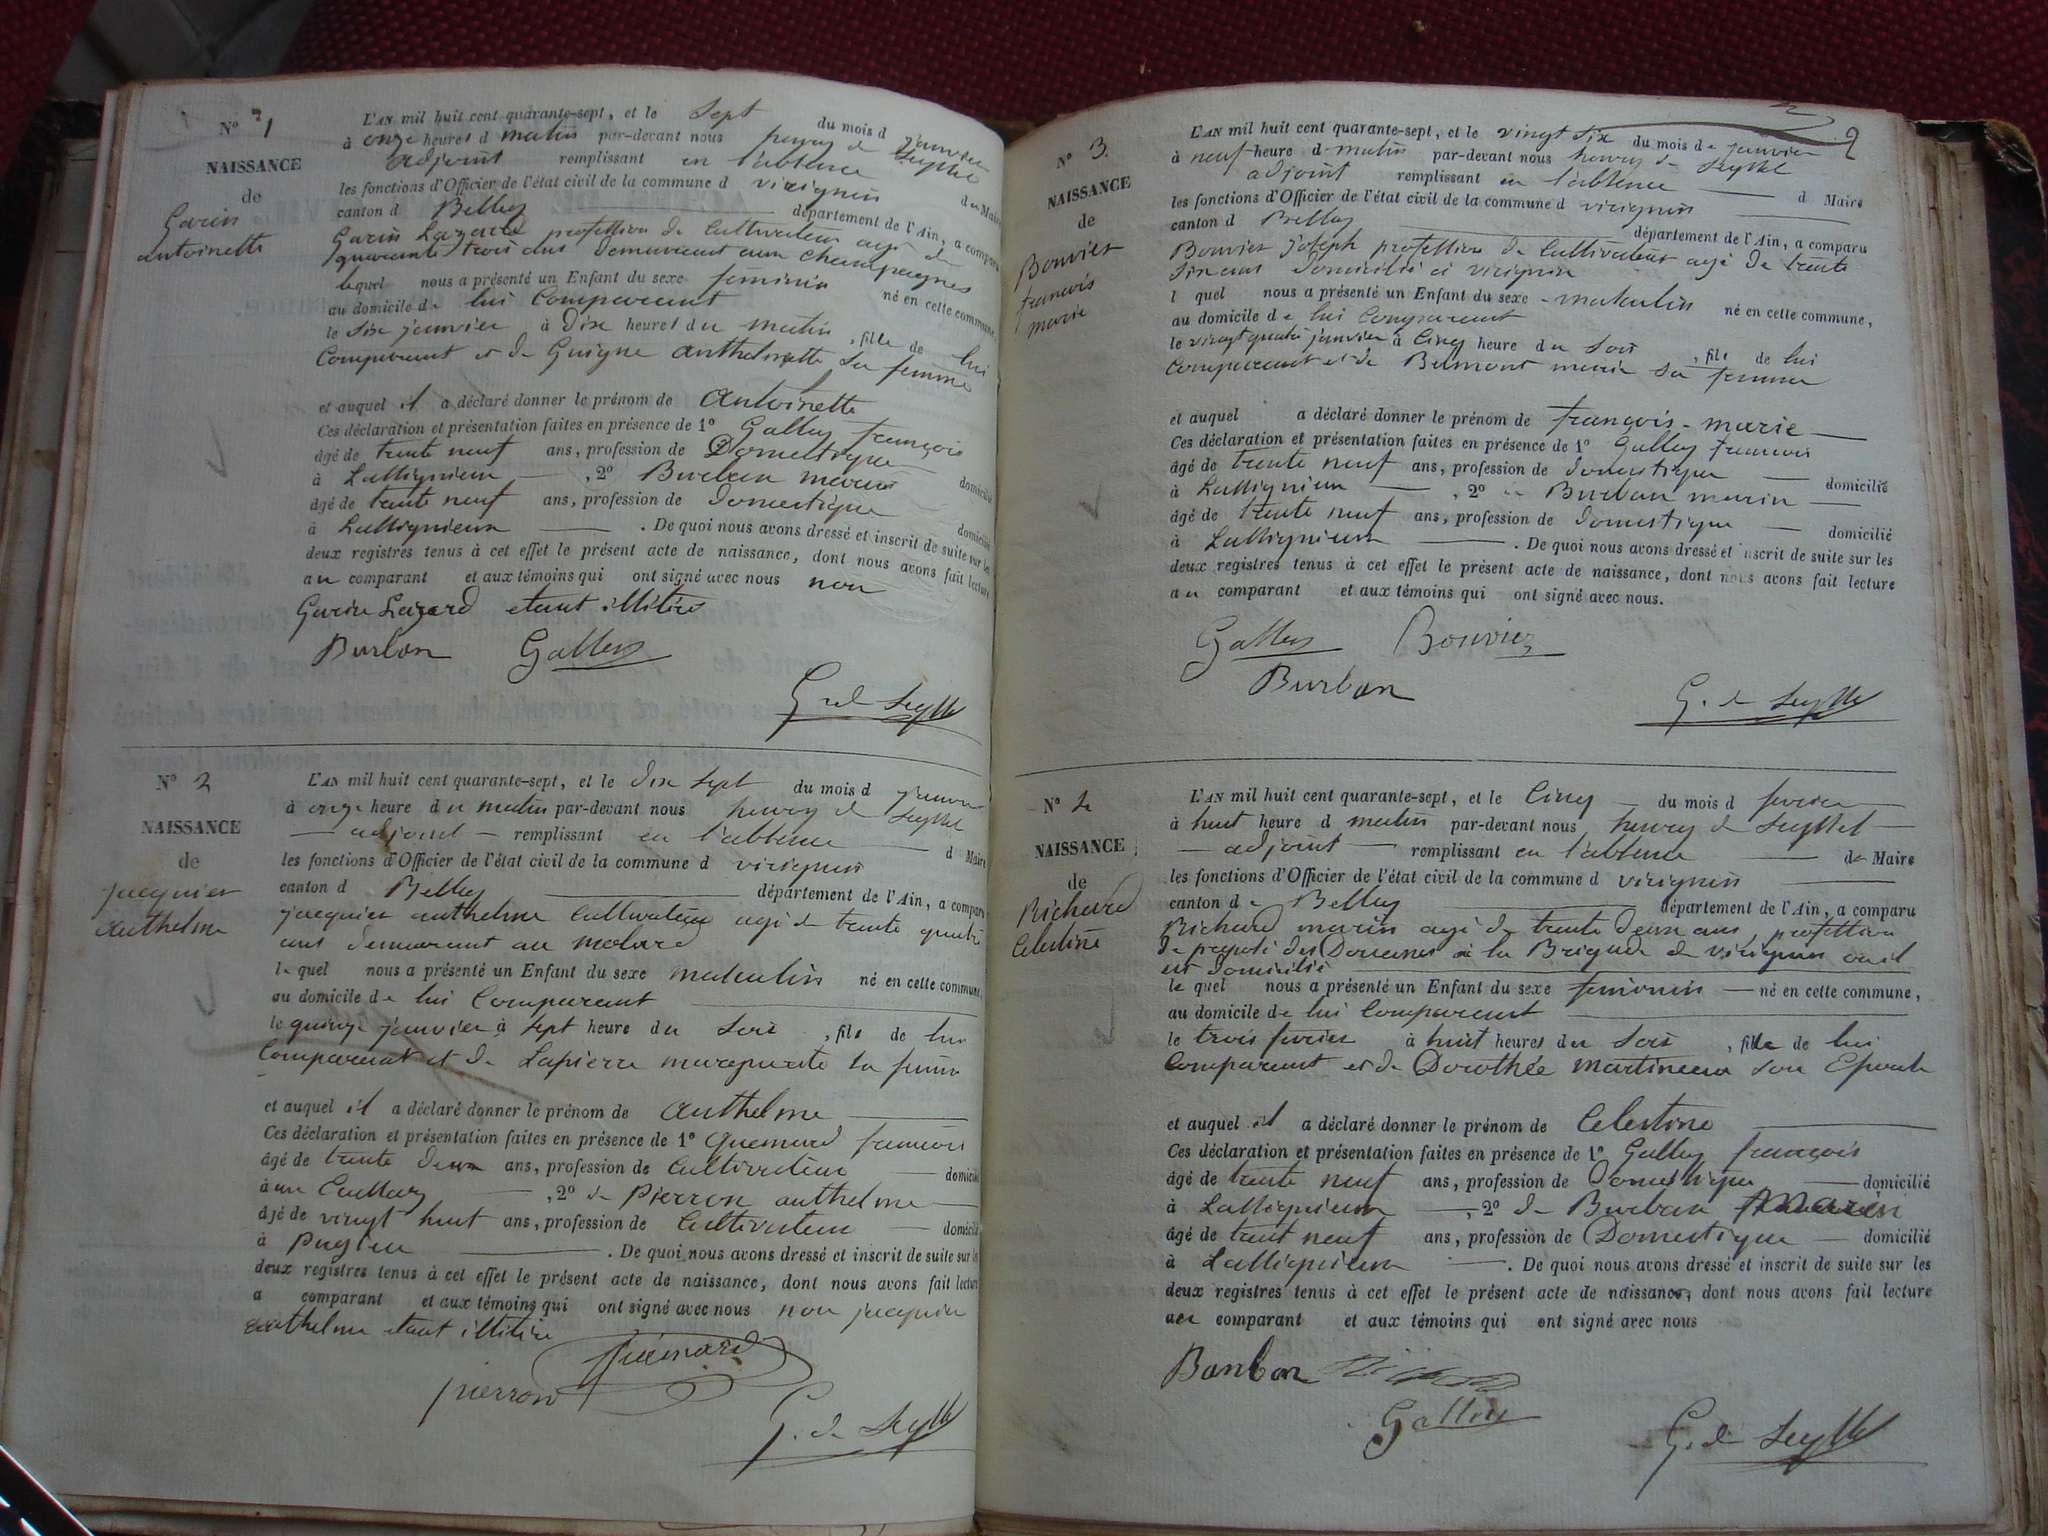 N° 1
NAISSANCE
de
Garin
antoinette
L'AN mil huit cent quarante-sept, et le Sept du mois d janvier
à onze heures d matin par-devant nous henry de Seyssel
adjoint remplissant en l'absence du Maire
les fonctions d'Officier de l'état civil de la commune d virignin
canton d Belley département de l'Ain, a comparu
Garin Lazard profession de Cultivateur agé de
quarante trois ans demeurant aux champagnes
lequel nous a présenté un Enfant du sexe feminin né en cette commune,
au domicile de lui Comparant
le six janvier à dix heures du matin, fille de lui
Comparant et de Guigne anthelmette sa femme
et auquel il a déclaré donner le prénom de Antoinette
Ces déclaration et présentation faites en présence de 1° Galley françois
âgé de trente neuf ans, profession de Domestique domicilié
à Lassignieux, 2° Burban marin
âgé de trente neuf ans, profession de domestique domicilié
à Lassignieux. De quoi nous avons dressé et inscrit de suite sur les
deux registres tenus à cet effet le présent acte de naissance, dont nous avons fait lecture
au comparant et aux témoins qui ont signé avec nous non
Garin Lazard etant illitéré
Burban Galley
G. de Seyssel
N° 2
NAISSANCE
de
jacquier
anthelme
L'AN mil huit cent quarante-sept, et le dix sept du mois d janvier
à onze heure du matin par-devant nous henry de Seyssel
adjoint remplissant en l'absence d Maire
les fonctions d'Officier de l'état civil de la commune d virignin
canton d Belley département de l'Ain, a comparu
jacquier anthelme Cultivateur agé de trente quatre
ans demeurant au molard
lequel nous a présenté un Enfant du sexe masculin né en cette commune,
au domicile de lui Comparant
le quinze janvier à sept heure du soir, fils de lui
Comparant et de Lapierre marguerite sa femme
et auquel il a déclaré donner le prénom de anthelme
Ces déclaration et présentation faites en présence de 1° Guemard francois
âgé de trente deux ans, profession de Cultivateur domicilié
à, 2° de Pierron anthelme
âgé de vingt huit ans, profession de Cultivateur domicilié
à Pugieu. De quoi nous avons dressé et inscrit de suite sur les
deux registres tenus à cet effet le présent acte de naissance, dont nous avons fait lecture
a comparant et aux témoins qui ont signé avec nous non jacquier
anthelme etant illitéré
pierron
G. de Seyssel
2
N° 3.
NAISSANCE
de
Bouvier
francois
marie
L'AN mil huit cent quarante-sept, et le vingt six du mois de janvier
à neuf heure d matin par-devant nous henry de Seyssel
adjoint remplissant en l'absence d Maire
les fonctions d'Officier de l'état civil de la commune d virignin
canton d Belley département de l'Ain, a comparu
Bouvier joseph profession de Cultivateur agé de trente
six ans domicilié à virignin
l quel nous a présenté un Enfant du sexe masculin né en cette commune,
au domicile de lui Comparant
le vingt quatre janvier à Cinq heure du soir, fils de lui
Comparant et de Bumont marie sa femme
et auquel a déclaré donner le prénom de françois-marie
Ces déclaration et présentation faites en présence de 1° Galley francois
âgé de trente neuf ans, profession de domestique domicilié
à Lassignieux, 2° Burban marin
âgé de trente neuf ans, profession de domestique domicilié
à Lassignieux. De quoi nous avons dressé et inscrit de suite sur les
deux registres tenus à cet effet le présent acte de naissance, dont nous avons fait lecture
au comparant et aux témoins qui ont signé avec nous.
Galley Bouvier
Burban
G. de Seyssel
N° 4
NAISSANCE
de
Richard
Celestine
L'AN mil huit cent quarante-sept, et le Cinq du mois d fevrier
à huit heure d matin par-devant nous henry de Seyssel
adjoint remplissant en l'absence du Maire
les fonctions d'Officier de l'état civil de la commune d virignin
canton de Belley département de l'Ain, a comparu
Richard marin agé de trente deux ans, profession
de preposé des Douanes à la Brigade de virignin ou il
est domicilié
lequel nous a présenté un Enfant du sexe feminin né en cette commune,
au domicile de lui Comparant
le trois fevrier à huit heures du soir, fille de lui
Comparant et de Dorothée martineau son Epouse
et auquel il a déclaré donner le prénom de Celestine
Ces déclaration et présentation faites en présence de 1° Galley françois
âgé de trente neuf ans, profession de Domestique domicilié
à Lassignieux, 2° de Burban Marin
âgé de trent neuf ans, profession de Domestique domicilié
à Lassignieux. De quoi nous avons dressé et inscrit de suite sur les
deux registres tenus à cet effet le présent acte de naissance, dont nous avons fait lecture
au comparant et aux témoins qui ont signé avec nous
Banban Richard
Galley
G. de Seyssel